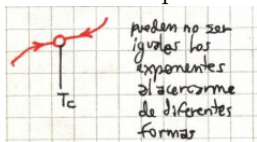 pueden no ser
iguales los
exponentes
al acercarme
de diferentes
formas
Tc